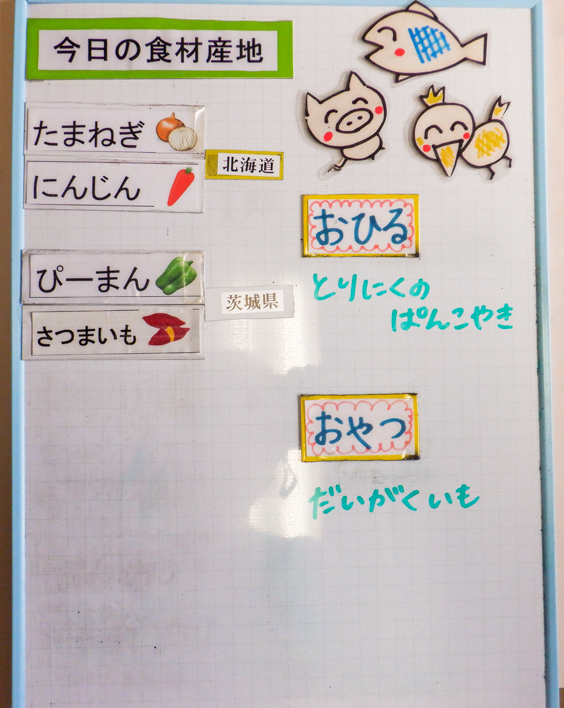 今日の食材産地
たまねぎ
にんじん
北海道
ぴーまん
さつまいも
茨城県
おひる
とりにくの
ぱんこやき
おやつ
だいがくいも